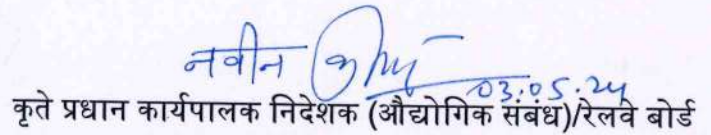 नवीन कुमार
03.05.24
कृते प्रधान कार्यपालक निदेशक (औद्योगिक संबंध)/रेलवे बोर्ड